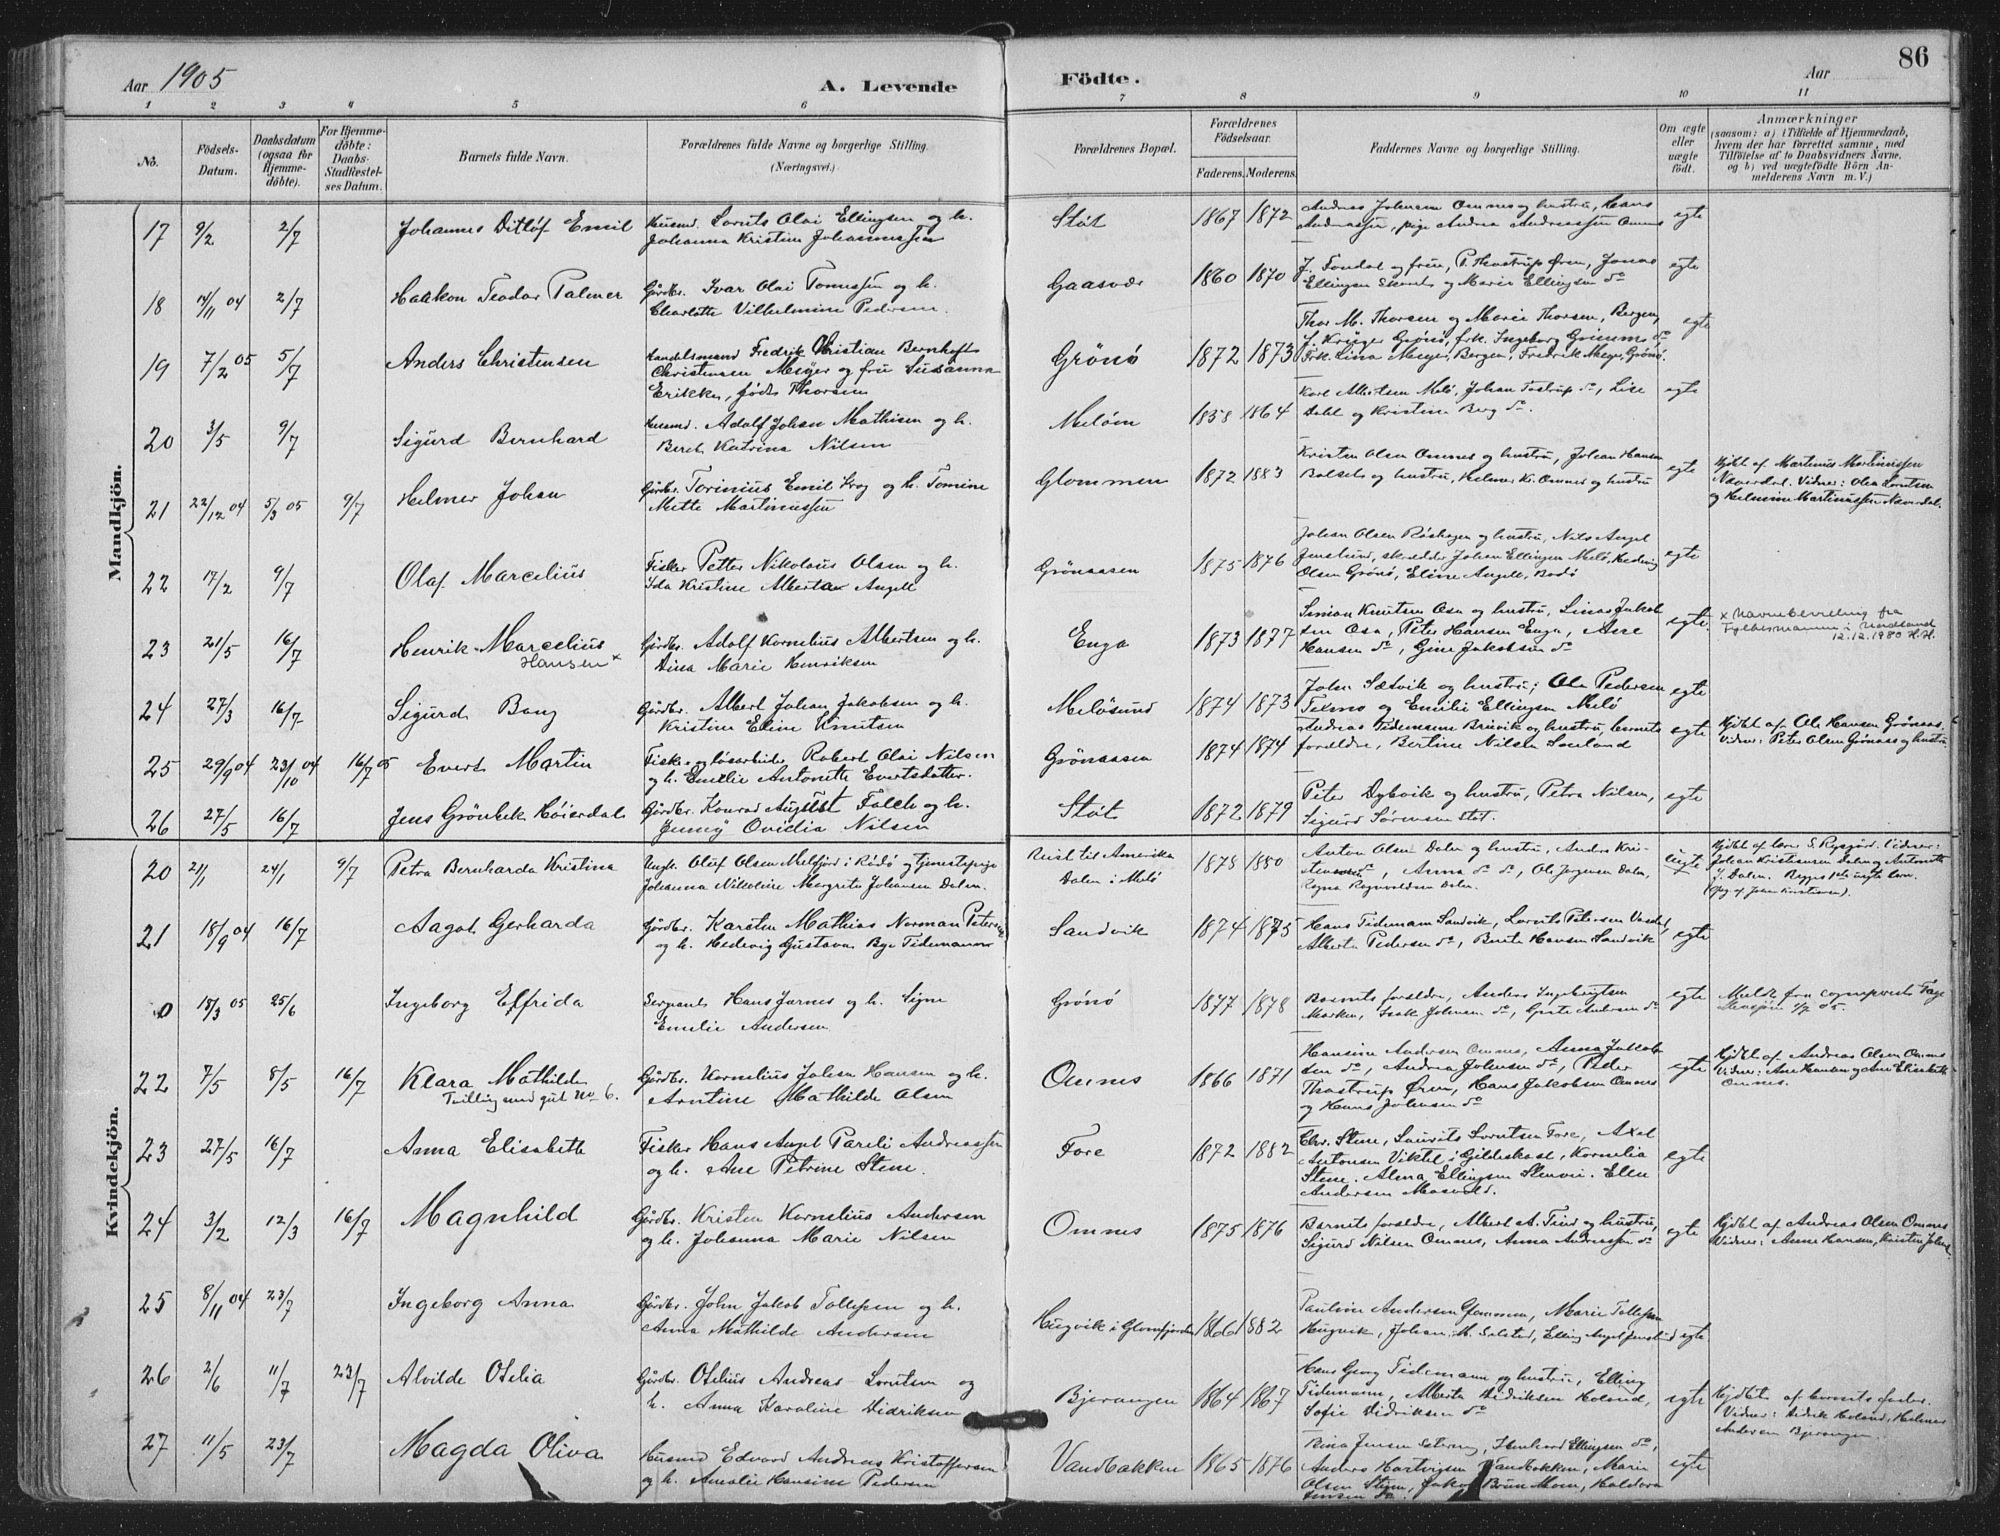 Aar 1905
A. Levende
Födte.
Aar
86
1 2 3 4 5 6 7 8 9 10 11
No.
Födsels-
Datum.
Daabsdatum
(ogsaa for
Hjemme-
döbte).
For Hjemme-
döbte:
Daabs-
Stadfæstel-
ses Datum.
Barnets fulde Navn.
Forældrenes fulde Navne og borgerlige Stilling.
(Næringsvei.)
Forældrenes Bopæl.
Forældrenes
Födselsaar.
Faderens. Moderens.
Faddernes Navne og borgerlige Stilling.
Om ægte
eller
uægte
födt.
Anmærkninger
(saasom: a) i Tilfælde af Hjemmedaab,
hvem der har forrettet samme, med
Tilföielse af to Daabsvidners Navne,
og b) ved uægtefödte Börn An-
melderens Navn m. V.)
Mandkjön.
17 9/2 2/7 Johannes Ditlöf Emil
Husmd. Lorents Olai Ellingsen og h.
Johanna Kristine Johannessen
Stöt 1867 1872
Andreas Johnsen Ommes og hustru, Hans
Andreassen, pige Andrea Andreassen Omnes
egte
18 14/11 04 2/7 Haakon Teodor Palmer
Gårdbr. Ivar Olai Tomassen og h.
Charlotte Vilhelmine Pedersen.
Gaasvær 1860 1870
J. Fondal og frue, P. Thostrup Øren, Jonas
Ellingsen og Marie Ellingsen do
egte
19 7/2 05 5/7 Anders Christensen
Handelsmand Fredrik Christian Bernhoft
Christensen Meyer og fru Susanna
Erikke, født Thorsen
Grönö 1872 1873
Thor M. Thorsen og Marie Thorsen, Bergen,
J. Krüger Grönö, frk. Ingeborg Grimms do
Frk. Lina Meyer, Bergen, Fredrik Meyer, Grönö.
egte
20 3/5 9/7 Sigurd Bernhard
Husmd. Adolf Johan Mathisen og h.
Beret Katrina Nilsen
Melöen 1838 1864
Karl Albertsen Melö, Johan Tostrup do, Lise
Dahl og Kristine Berg do.
egte
21 22/12 04 5/3 05 9/7 Helmer Johan
Gårdbr. Torinius Emil Krog og h. Tomine
Mette Martinussen
Glommen 1872 1883
Kristen Olsen Omnes og hustru, Johan Hansen
Bolset og hustru, Helmer Kr. Omnes og hustru
egte
Hjdbt af Martinus Martinussen
Næverdal. Vidner: Olea Lorntsen
og Helmine Martinussen Næverdal.
22 17/2 9/7 Olaf Marcelius
Fisker Petter Nikolaus Olsen og h.
Ida Kristine Alberta Angell
Grönaasen 1875 1876
Johan Olsen Röshagen og hustru, Nils Angel
Jenslund, skrædder Johan Ellingsen Melö, Hedvig
Olsen Grönö, Eline Angell, Bodö
egte
23 21/5 16/7 Henrik Marcelius
Hansen x
Gårdbr. Adolf Kornelius Albertsen og h.
Dina Marie Henriksen
Enga 1873 1877
Simon Knutsen Osa og hustru, Linas Jakob
sen Osa, Peter Hansen Enga, Ane
Hansen do, Gine Jakobsen do
egte
x Navnebevilling fra
Fylkesmannen i Nordland
12.12.1980 H.H.
24 27/3 16/7 Sigurd Bang
Gårdbr. Albert Johan Jakobsen og h.
Kristine Eline Knutsen
Melösund 1874 1873
John Sætvik og hustru; Ole Pedersen
Teksmo og Emilie Ellingsen Melö
egte
25 29/9 04 23/10 04 16/7 05 Evert Martin
Fisker og løsarbeider Robert Olai Nilsen
og h. Emelie Antonette Evertsdatter.
Grönaasen 1874 1874
Andreas Tidemann Breivik og hustru, barnets
foreldre, Bertine Nilsen Sauland
egte
Hjdbt af Ole Hansen Grönaas.
Vidner: Peter Olsen Grönaas og hustru
26 27/5 16/7 Jens Grönbek Höierdal
Gårdbr. Konrad August Falch og h.
Jenny Ovidia Nilsen
Stöt 1872 1879
Peter Dybvik og hustru, Petra Nilsen,
Sigurd Sørensen Stöt.
egte
Kvindekjön.
20 21/1 24/1 9/7 Petra Bernharda Kristina
Ungk. Oluf Olsen Melfjord i Rödö og tjenestepige
Johanna Nikoline Margrete Johansen Dalen.
Reist til Amerika
Dalen i Melö
1878 1880
Anton Olsen Dalen og hustru, Anders Kri-
stensen do, Anna do do, Ole Jorgensen Dalen,
Ragna Ragnvaldsen Dalen
uegte
Johan Kristiansen Dalen og Antonette
J. Dalen. Begges 1ste uegte barn.
21 18/9 04 16/7 Aagot Gerharda
Gårdbr. Karsten Mathias Norman Petersen
og h. Hedevig Gustava Bye Tidemann
Sandvik 1874 1875
Hans Tidemann Sandvik, Lorents Petersen Vasdal,
Alberta Pedersen do, Berta Hansen Sandvik
egte
0 18/3 05 25/6 Ingeborg Elfrida
Sergeant Hans Jarnes og h. Signe
Emelie Andersen
Grönö 1877 1878
Barnets forældre, Anders Ingebrigtsen
Marken, Isak Johnsen do, Grete Andersen do
egte
Meldt fra sogneprest Tage
4/7 05.
22 7/5 8/5 16/7 Klara Mathilde
Tvilling med gut No 6.
Gårdbr. Kornelius Johan Hansen og h.
Arntine Mathilde Olsen
Omnes 1866 1871
Hansine Andersen Omnes, Anna Jakob
sen do, Andrea Johnsen do, Peder
Thostrup Øren, Hans Jakobsen Omnes
og Hanna Johnsen do
egte
Hjdbt af Andreas Olsen Omnes
Vidner: Ane Hansen og Ane Elisabeth
Omnes.
23 27/5 16/7 Anna Elisabeth
Fisker Hans Angel Pareli Andreassen
og h. Ane Petrine Stene.
Fore 1872 1882
Chr. Stene, Laurits Lorntsen Fore, Axel
Antonsen Viktel i Gildeskaal, Kornelia
Stene, Alma Ellingsen Stenvei. Ellen
Andersen Mosvold.
egte
24 3/2 12/3 16/7 Magnhild
Gårdbr. Kristen Kornelius Andersen
og h. Johanna Marie Nilsen
Omnes 1875 1876
Barnets forældre, Albert A. Tind og hustru,
Sigurd Nilsen Omnes, Anna Andreassen do
egte
Hjdbt af Andreas Olsen Omnes
Vidner: Anne Hansen, Kristen Johns.
25 8/11 04 23/7 Ingeborg Anna
Gårdbr. John Jakob Tollefsen og h.
Anna Mathilde Andersen
Hugvik i Glomfjorden 1866 1882
Pauline Andersen Glommen, Marie Tollefsen
Hugvik, Johan M. Selstad, Elling Angel Jenslund
egte
26 2/6 11/7 23/7 Alvilde Otelia
Gårdbr. Otelius Andreas Lorntsen og
h. Anna Karoline Didriksen
Bjerangen 1864 1867
Hans Georg Tidemann og hustru, Elling
Tidemann, Alberta Didriksen Holand,
Sofie Didriksen do
egte
Hjdbt af barnets fader.
Vidner: Didrik Holand, Helmer
Andersen Bjerangen.
27 11/5 23/7 Magda Oliva
Husmd Edvard Andreas Kristoffersen
og h. Amalie Hansine Pedersen
Vandbakken 1865 1876
Rina Jensen Setvung, Henhard Ellingsen do,
Anders Hartvigsen Vandbakken, Marie
Olsen Stien, Jakob Bruun Moen, Haldora
Jensen do.
egte